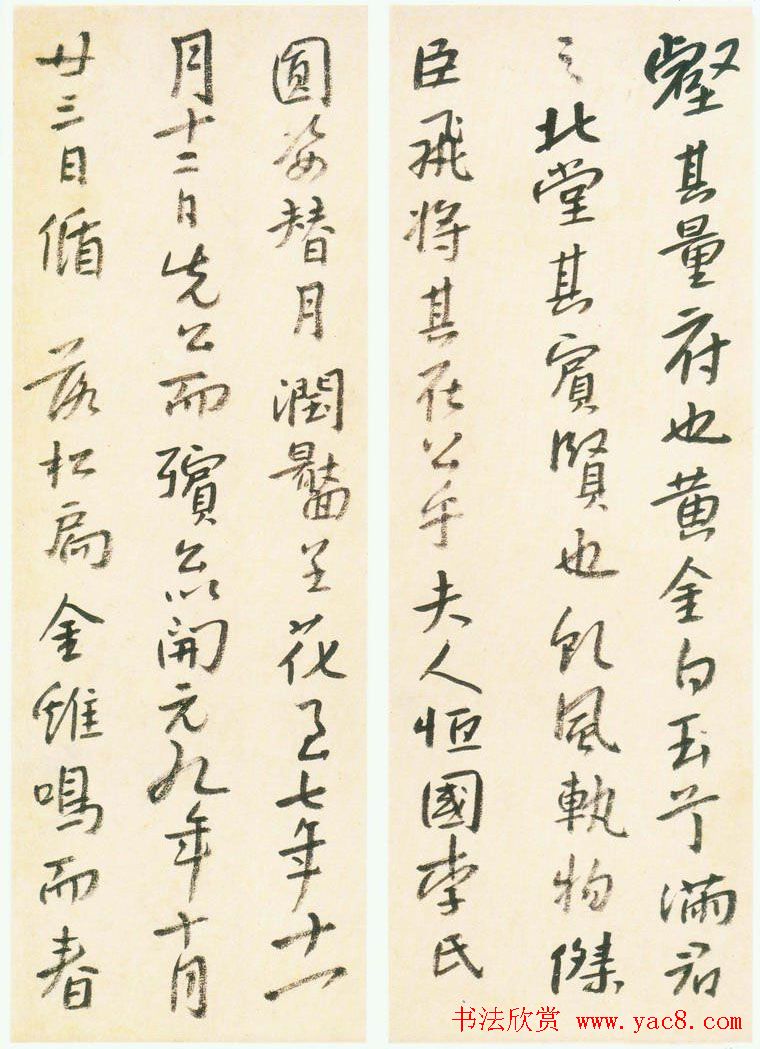 壑其量府也黄金白玉不满君
之北堂其賓賢也飢風執物傑
臣飛將其在公乎夫人恒國李氏
圓姿替月潤臉呈花開元七年十一
月十二日先公而殯粵以開元九年十月
廿三日循 落松扃金雖鳴而春
书法欣赏 www.yac8.com